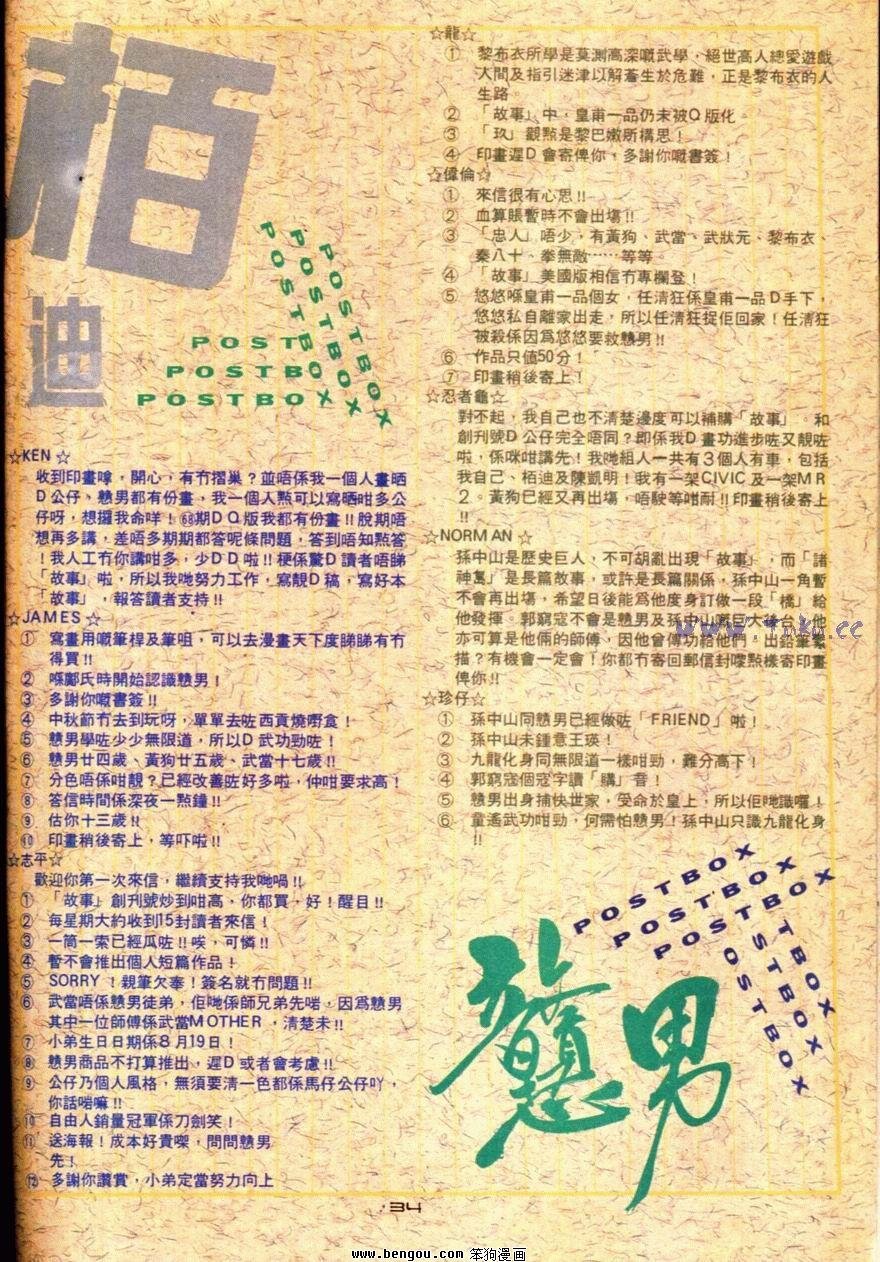 栢
迪
POSTBOX
POSTBOX
POSTBOX
POST
POSTB
POSTBOX
☆KEN☆
收到印畫嗱，開心，有冇摺巢？並唔係我一個人畫晒
D公仔、戇男都有份畫，我一個人點可以寫晒咁多公
仔呀，想攞我命咩！68期DQ版我都有份畫!!脫期唔
想再多講，差唔多期期都答呢條問題，答到唔知點答
！我人工冇你講咁多，少DD啦!!梗係驚D讀者唔睇
「故事」啦，所以我哋努力工作，寫靚D稿，寫好本
「故事」，報答讀者支持!!
☆JAMES☆
① 寫畫用嘅筆桿及筆咀，可以去漫畫天下度睇睇有冇
得買!!
② 喺鄺氏時開始認識戇男！
③ 多謝你嘅書簽!!
④ 中秋節冇去到玩呀，單單去咗西貢燒嘢食！
⑤ 戇男學咗少少無限道，所以D武功勁咗！
⑥ 戇男廿四歲、黃狗廿五歲、武當十七歲!!
⑦ 分色唔係咁靚？已經改善咗好多啦，仲咁要求高！
⑧ 答信時間係深夜一點鐘!!
⑨ 估你十三歲!!
⑩ 印畫稍後寄上，等吓啦!!
☆志平☆
歡迎你第一次來信，繼續支持我哋喎!!
① 「故事」創刊號炒到咁高，你都買，好！醒目!!
② 每星期大約收到15封讀者來信！
③ 一筒一索已經瓜咗!!唉，可憐!!
④ 暫不會推出個人短篇作品！
⑤ SORRY！親筆欠奉！簽名就冇問題!!
⑥ 武當唔係戇男徒弟，佢哋係師兄弟先啱，因爲戇男
其中一位師傅係武當MOTHER，清楚未!!
⑦ 小弟生日日期係8月19日！
⑧ 戇男商品不打算推出，遲D或者會考慮!!
⑨ 公仔乃個人風格，無須要清一色都係馬仔公仔吖，
你話啱嘛!!
⑩ 自由人銷量冠軍係刀劍笑！
⑪ 送海報！成本好貴㗎，問問戇男
先！
⑫ 多謝你讚賞，小弟定當努力向上
☆龍☆
① 黎布衣所學是莫測高深嘅武學，絕世高人總愛遊戲
人間及指引迷津以解蒼生於危難，正是黎布衣的人
生路。
② 「故事」中，皇甫一品仍未被Q版化。
③ 「玖」觀點是黎巴嫩所構思！
④ 印畫遲D會寄俾你，多謝你嘅書簽！
☆偉倫☆
① 來信很有心思!!
② 血算賬暫時不會出場!!
③ 「忠人」唔少，有黃狗、武當、武狀元、黎布衣、
秦八十、拳無敵……等等。
④ 「故事」美國版相信冇專欄登！
⑤ 悠悠喺皇甫一品個女，任淸狂係皇甫一品D手下，
悠悠私自離家出走，所以任淸狂捉佢回家！任淸狂
被殺係因爲悠悠要救戇男!!
⑥ 作品只值50分！
⑦ 印畫稍後寄上！
☆忍者龜☆
對不起，我自己也不淸楚邊度可以補購「故事」。和
創刊號D公仔完全唔同？即係我D畫功進步咗又靚咗
啦，係咪咁講先！我哋組人一共有3個人有車，包括
我自己、栢迪及陳凱明！我有一架CIVIC及一架MR
2。黃狗已經又再出場，唔駛等咁耐!!印畫稍後寄上
!!
☆NORMAN☆
孫中山是歷史巨人，不可胡亂出現「故事」，而「諸
神篇」是長篇故事，或許是長篇關係，孫中山一角暫
不會再出場，希望日後能爲他度身訂做一段「橋」給
他發揮。郭窮寇不會是戇男及孫中山嘅巨大後台，他
亦可算是他倆的師傅，因他會傳功給他們！出鉛筆素
描？有機會一定會！你都冇寄回郵信封嚟點樣寄印畫
俾你!!
☆珍仔☆
① 孫中山同戇男已經做咗「FRIEND」啦！
② 孫中山未鍾意王瑛！
③ 九龍化身同無限道一樣咁勁，難分高下！
④ 郭窮寇個寇字讀「購」音！
⑤ 戇男出身捕快世家，受命於皇上，所以佢哋識囉！
⑥ 童遙武功咁勁，何需怕戇男！孫中山只識九龍化身
!!
POSTBOX
POSTBOX
POSTBOX
TBOX
STBOX
OSTBOX
戇男
34
www.bengou.com 笨狗漫画